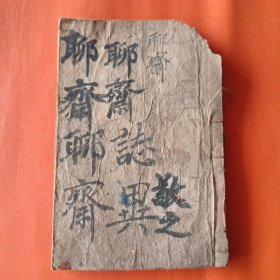 聊齋
聊齋誌異
聊齋聊齋
敬之